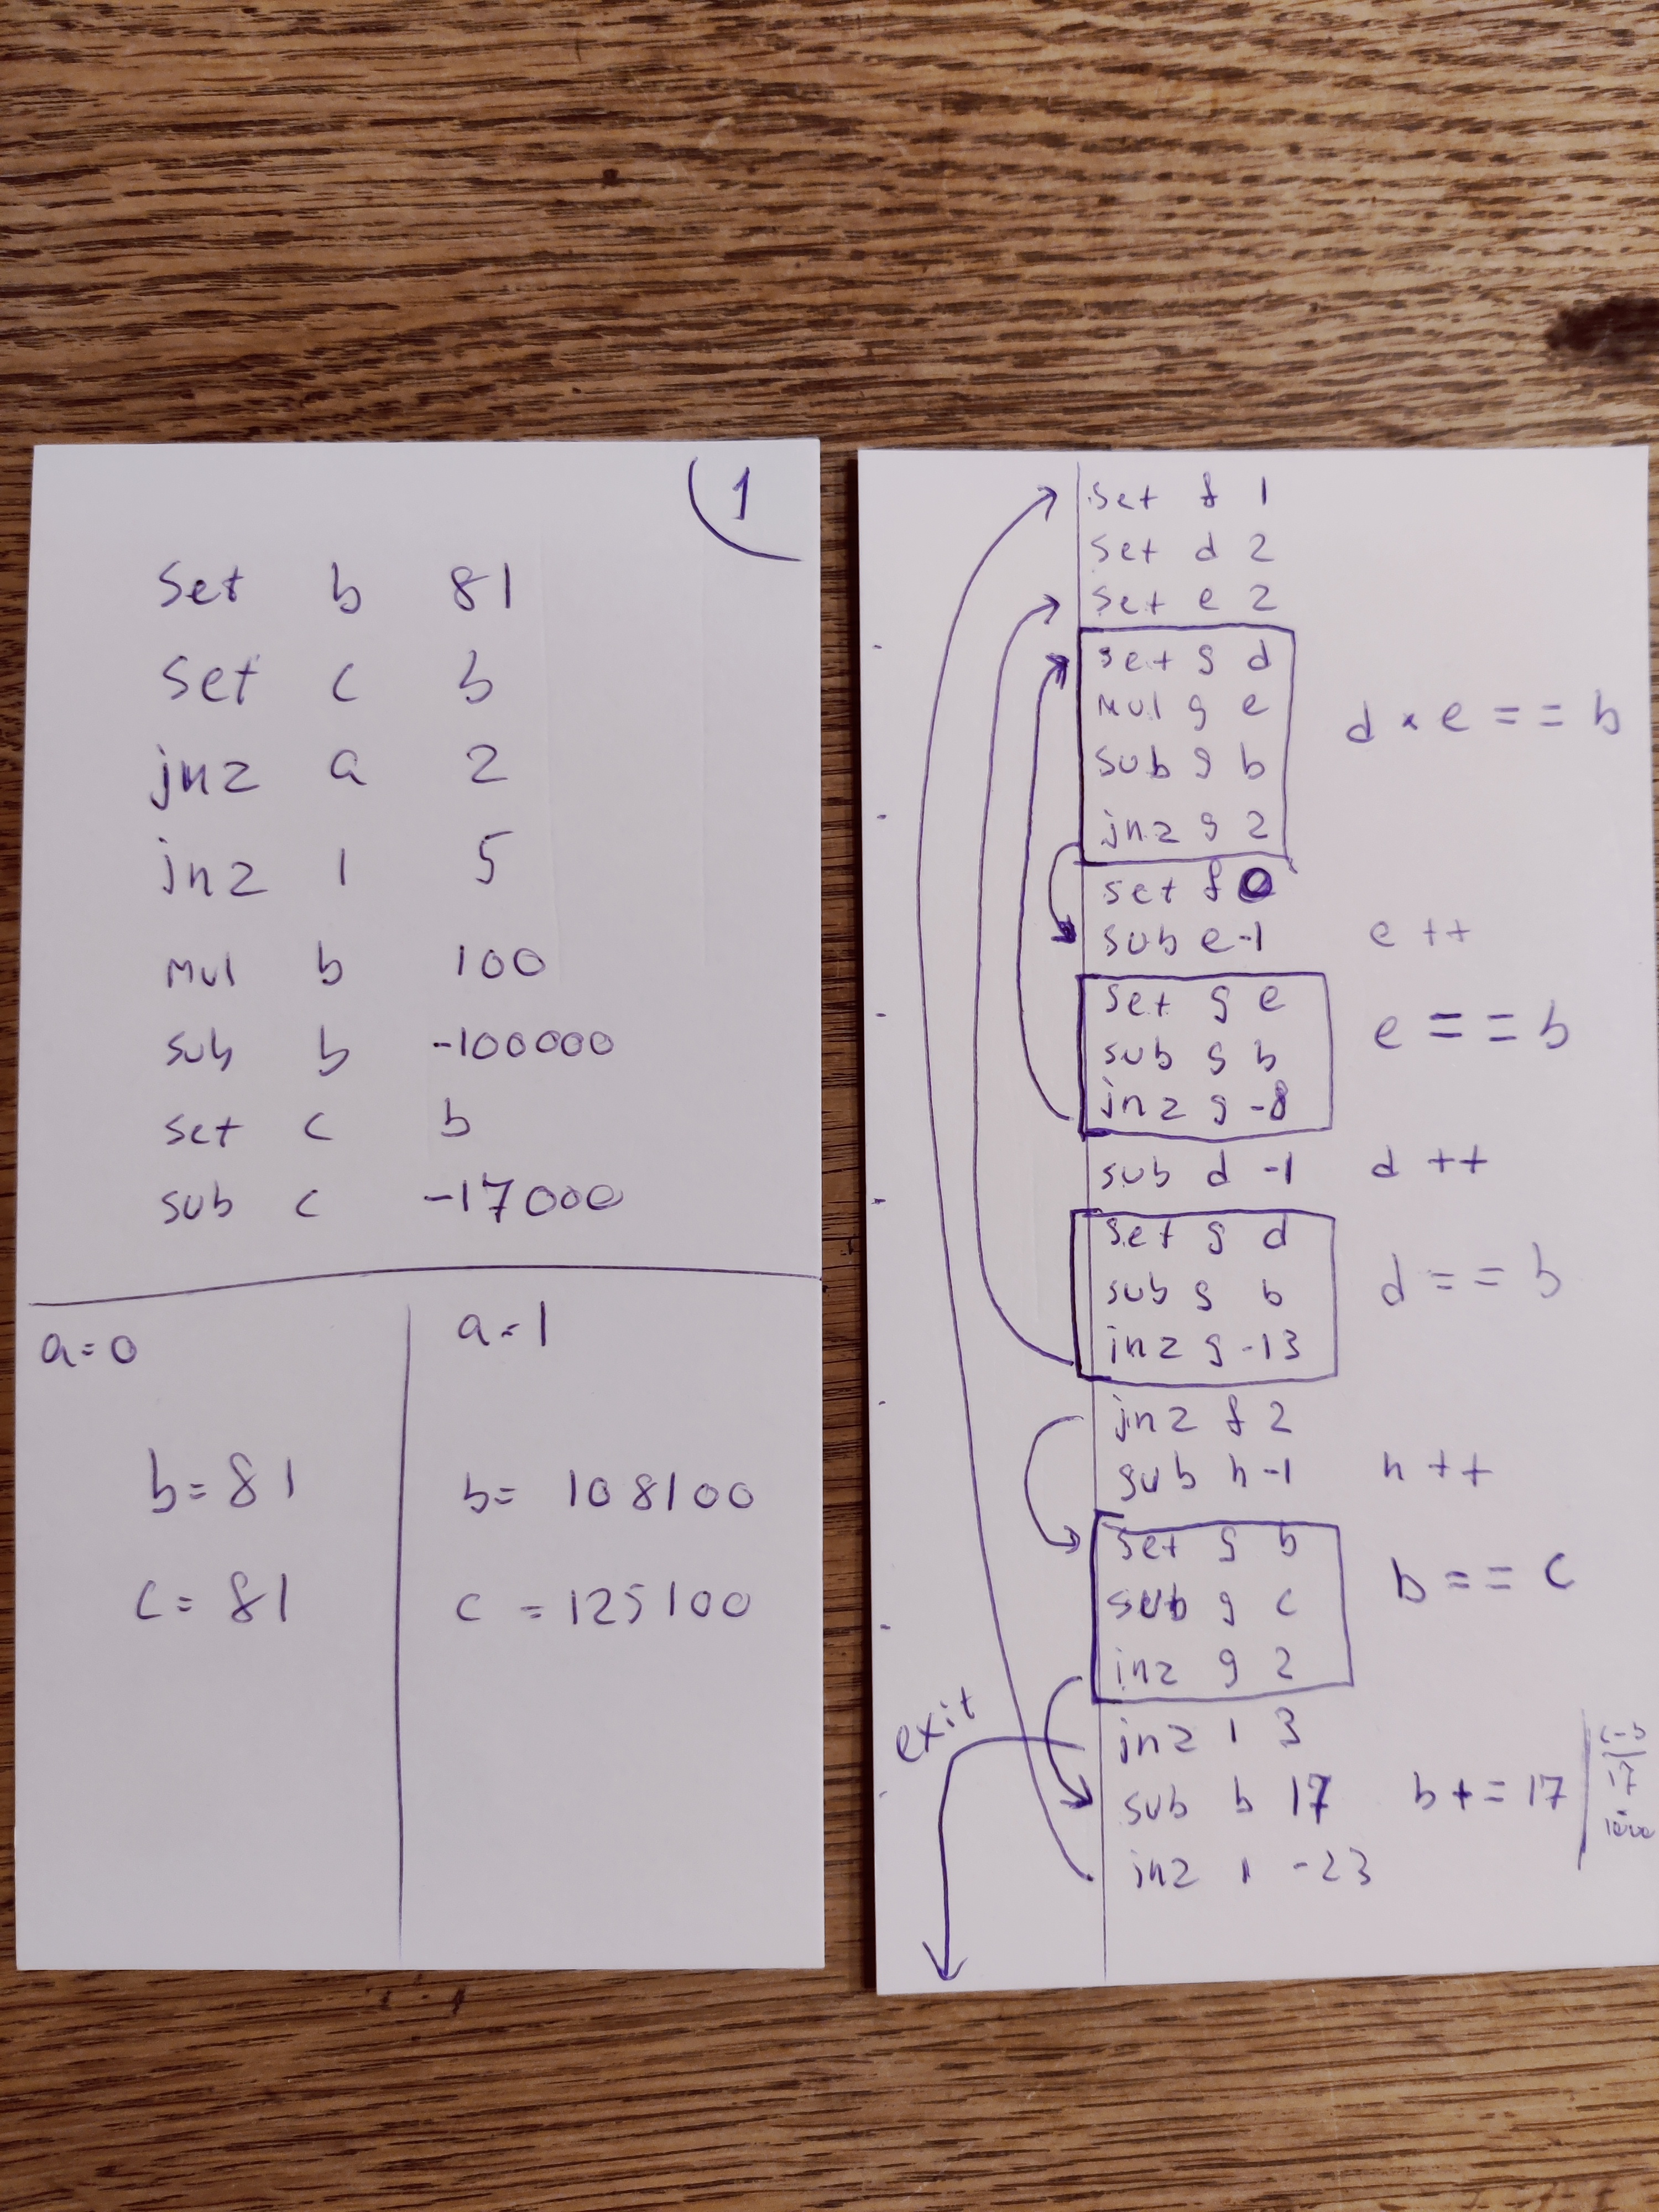 1
set b 81
set c b
jnz a 2
jnz 1 5
mul b 100
sub b -100000
set c b
sub c -17000
a=0
b=81
c=81
a=1
b= 108100
c =125100
set f 1
set d 2
set e 2
set g d
mul g e
sub g b
jnz g 2
d × e == b
set f 0
sub e -1 e ++
set g e
sub g b
jnz g -8
e == b
sub d -1 d ++
set g d
sub g b
jnz g -13
d == b
jnz f 2
sub h -1 h ++
set g b
sub g c
jnz g 2
b == c
exit
jnz 1 3
sub b 17 b += 17
c-b
17
1000
jnz 1 -23